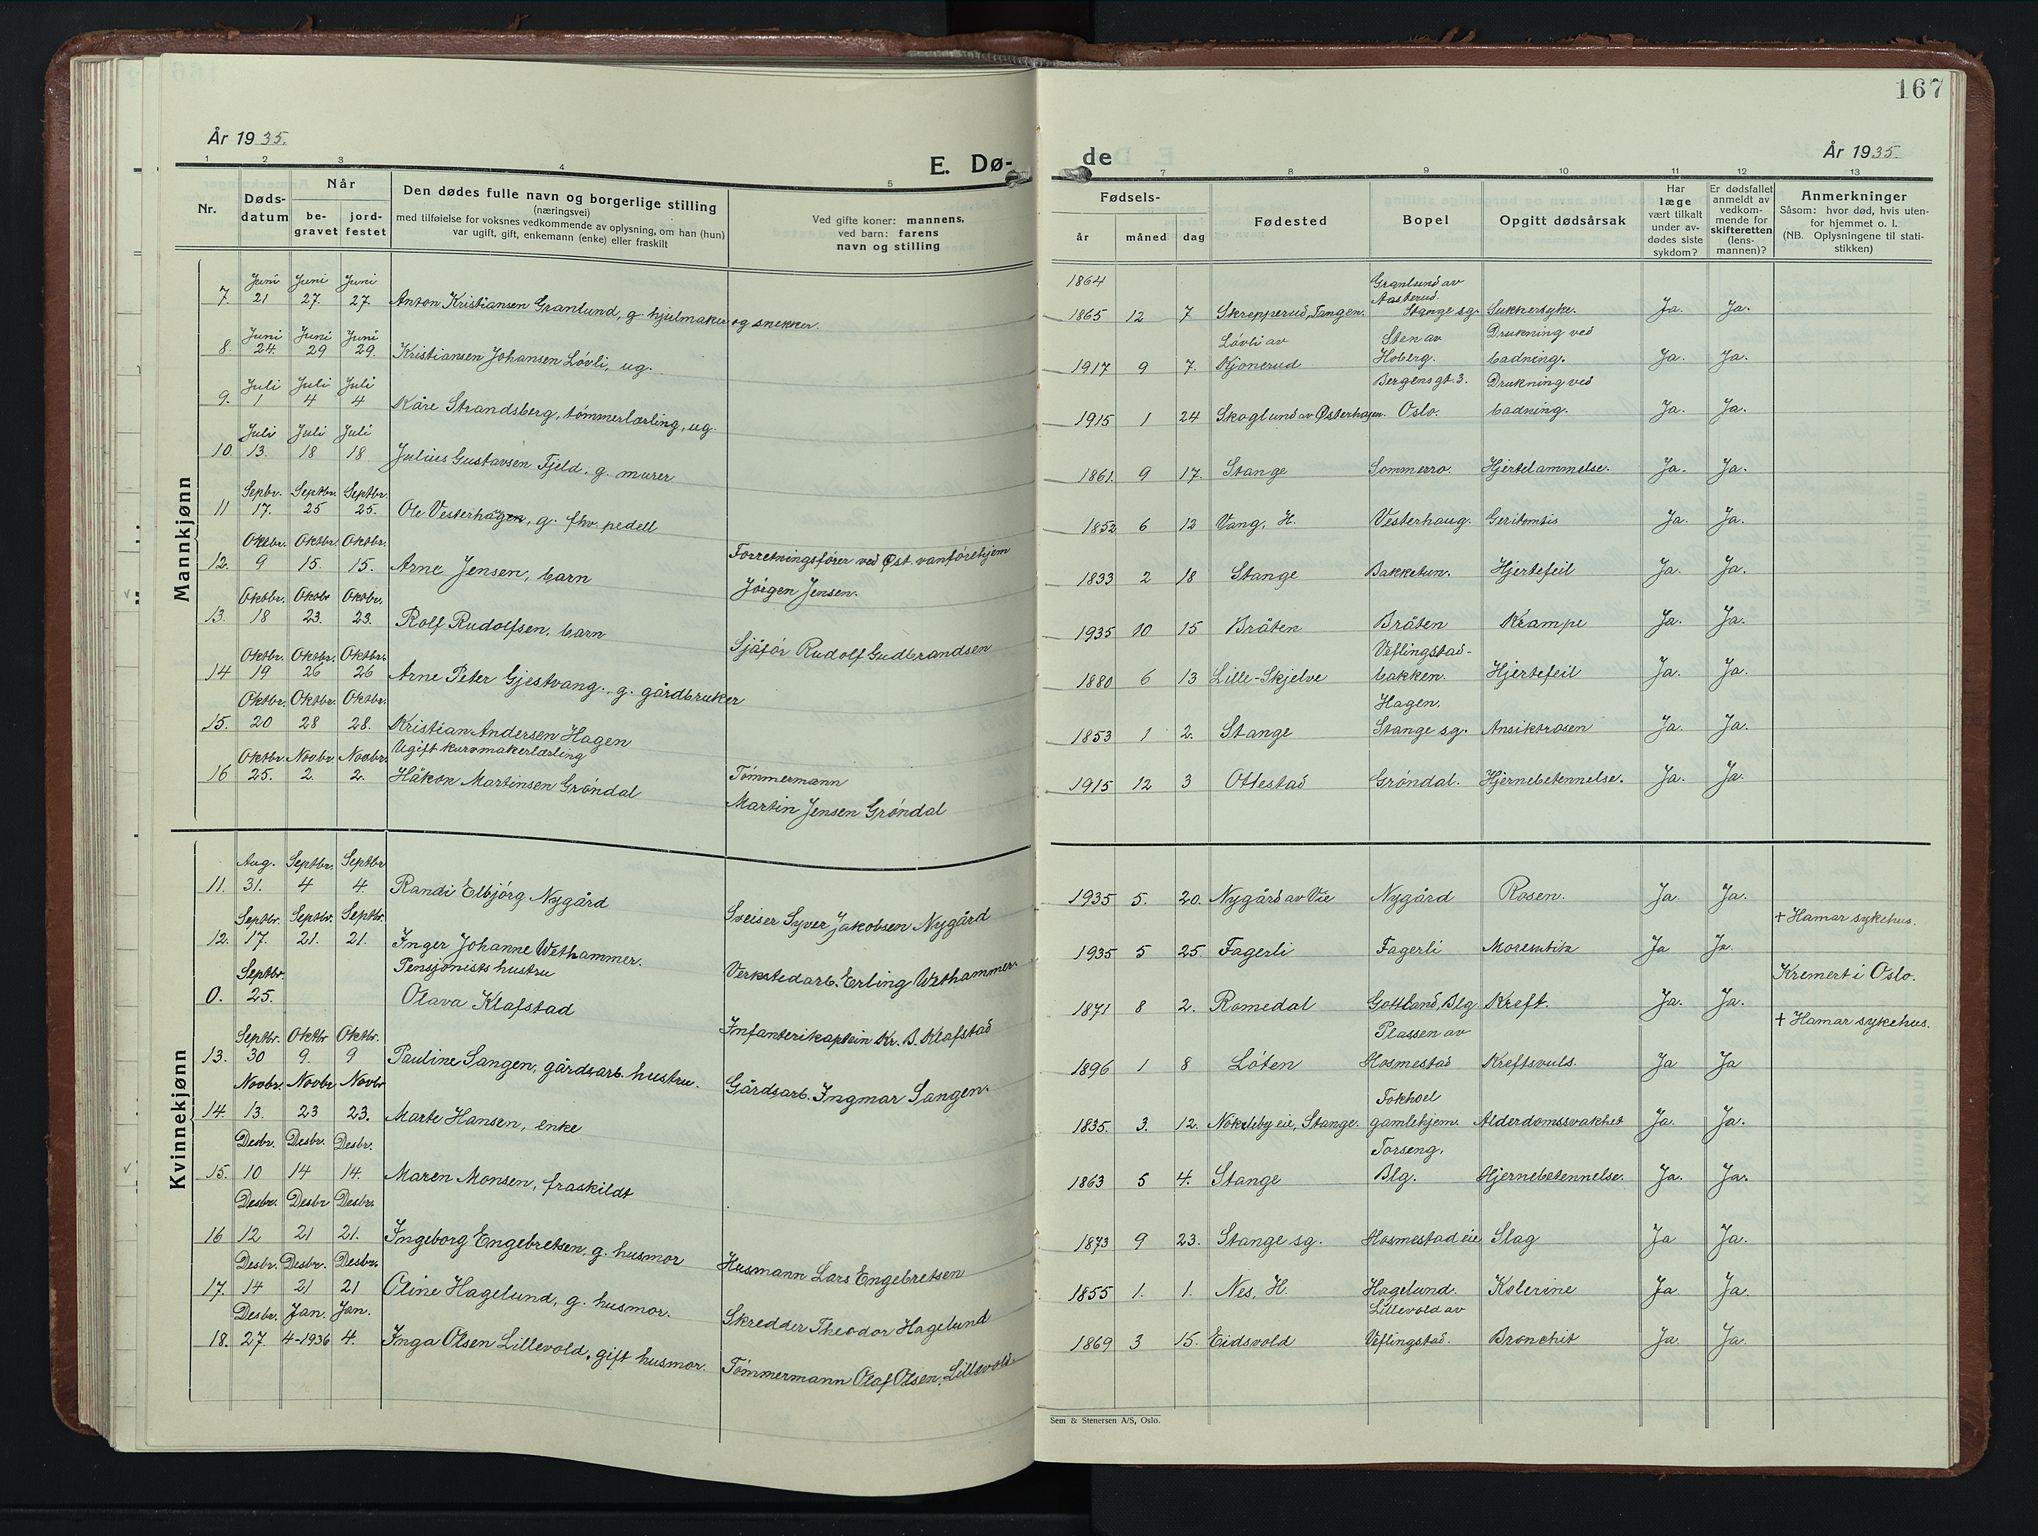 167
År 1935.
E. Dø-
de
År 1935.
1 2 3 4 5 7 8 9 10 11 12 13
Nr.
Døds-
datum
Når
be-
gravet
jord-
festet
Den dødes fulle navn og borgerlige stilling
(næringsvei)
med tilføielse for voksnes vedkommende av oplysning, om han (hun)
var ugift, gift, enkemann (enke) eller fraskilt
Ved gifte koner: mannens,
ved barn: farens
navn og stilling
Fødsels-
år måned dag
Fødested
Bopel
Opgitt dødsårsak
Har
læge
vært tilkalt
under av-
dødes siste
sykdom?
Er dødsfallet
anmeldt av
vedkom-
mende for
skifteretten
(lens-
mannen)?
Anmerkninger
Såsom: hvor død, hvis uten-
for hjemmet o. l.
(NB. Oplysningene til stati-
stikken)
Mannkjønn
Juni Juni Juni 1864 Granlund av
Aasterud.
7 21 27. 27. Anton Kristiansen Granlund, g. hjulmaker og snekker. 1865 12 7 Skrepperud, Tangen. Stange sg. Sukkersyke. Ja. Ja.
Juni Juni Juni Løvli av Sten av Drukning ved
8. 24. 29 29. Kristiansen Johansen Løvli, ug. 1917 9 7. Kjonerud Hoberg. badning. Ja. Ja.
Juli Juli Juli Bergensgt. 3. Drukning ved
9. 1 4 4 Kåre Strandsberg, tømmerlærling, ug. 1915 1 24 Skoglund av Østerhagen. Oslo. badning. Ja. Ja.
Juli Juli Juli
10 13. 18 18. Julius Gustavsen Fjeld, g. murer 1861. 9 17. Stange Sommerro. Hjertelammelse. Ja. Ja.
Sepbr. Septbr. Septbr.
11 17. 25 25. Ole Vesterhagen, g. fhv. pedell 1852 6 12 Vang, H. Vesterhaug. Ja. Ja.
Oktbr. Oktbr. Oktbr. Forretningsfører ved Øst. vanførehjem
12. 9 15. 15. Arne Jensen, barn Jörgen Jensen. 1833 2 18 Stange Bakketun. Hjertefeil Ja. Ja.
Oktbr. Oktbr Oktbr.
13. 18 23. 23. Rolf Rudolfsen, barn Sjåfør Rudolf Gudbrandsen 1935 10 15 Bråten Bråten Krampe Ja. Ja.
Oktbr. Oktbr. Oktbr. Veflingstad-
14 19 26 26 Arne Peter Gjestvang, g. gårdbruker 1880 6 13 Lille-Skjelve bakken. Hjertefeil Ja. Ja.
Oktbr. Oktbr. Oktbr. Hagen.
15. 20 28 28. Kristian Andersen Hagen 1853 1 2. Stange Stange sg. Ansiktrosen Ja. Ja.
Oktbr. Novbr. Novbr. Ugift kurvmakerlærling Tømmermann
16 25. 2. 2. Håkon Martinsen Grøndal Martin Jensen Grøndal 1915 12 3 Ottestad Grøndal. Hjernebetennelse. Ja. Ja.
Kvinnekjønn
Aug. Septbr. Septbr
11. 31. 4 4. Randi Elbjörg Nygård Sveiser Syver Jakobsen Nygård 1935 5. 20. Nygård av Vie Nygård Rosen. Ja. Ja.
Septbr. Septbr. Septbr. + Hamar sykehus.
12. 17. 21. 21. Inger Johanne Wethammer. Verkstedarb. Erling Wethammer. 1935 5 25. Fagerli Fagerli Ja Ja.
Septbr. Pensjonists hustru Kremert i Oslo.
0. 25. Olava Klafstad Infanterikaptein Kr. B. Klafstad 1871 8 2. Romedal Gottland, Blg Kreft. Ja. Ja.
Septbr. Oktbr Oktbr. Plassen av + Hamar sykehus.
13. 30 9. 9 Pauline Sangen, gårdsarb. hustru. Gårdsarb. Ingmar Sangen. 1896 1 8 Løten Hosmestad Kreftsvuls. Ja Ja
Novbr. Novbr Novbr Fokhoel
14. 13. 23 23. Marte Hansen, enke 1835. 3. 12. Nökleby eie, Stange. gamlehjem. Alderdomssvakhet Ja. Ja.
Desbr. Desbr. Desbr. Forseng,
15. 10 14 14. Maren Monsen, fraskildt 1863 5 4. Stange Blg. Hjernebetennelse. Ja. Ja.
Desbr. Desbr Desbr.
16 12 21 21. Ingeborg Engebretsen, g. husmor Husmann Lars Engebretsen 1873 9 23. Stange sg. Hosmestad eie Slag Ja Ja.
Desbr. Desbr. Desbr.
17. 14 21 21 Oline Hagelund, g. husmor. Skredder Theodor Hagelund 1855 1. 1. Nes, H. Hagelund. Kolerine Ja Ja.
Desbr. Jan. Jan. Lillevold av
18. 27 4-1936 4. Inga Olsen Lillevold, gift husmor. Tømmermann Olaf Olsen Lillevold 1869 3 15. Eidsvold Veflingstad. Bronchit Ja. Ja.
Sem & Stenersen A/S, Oslo.